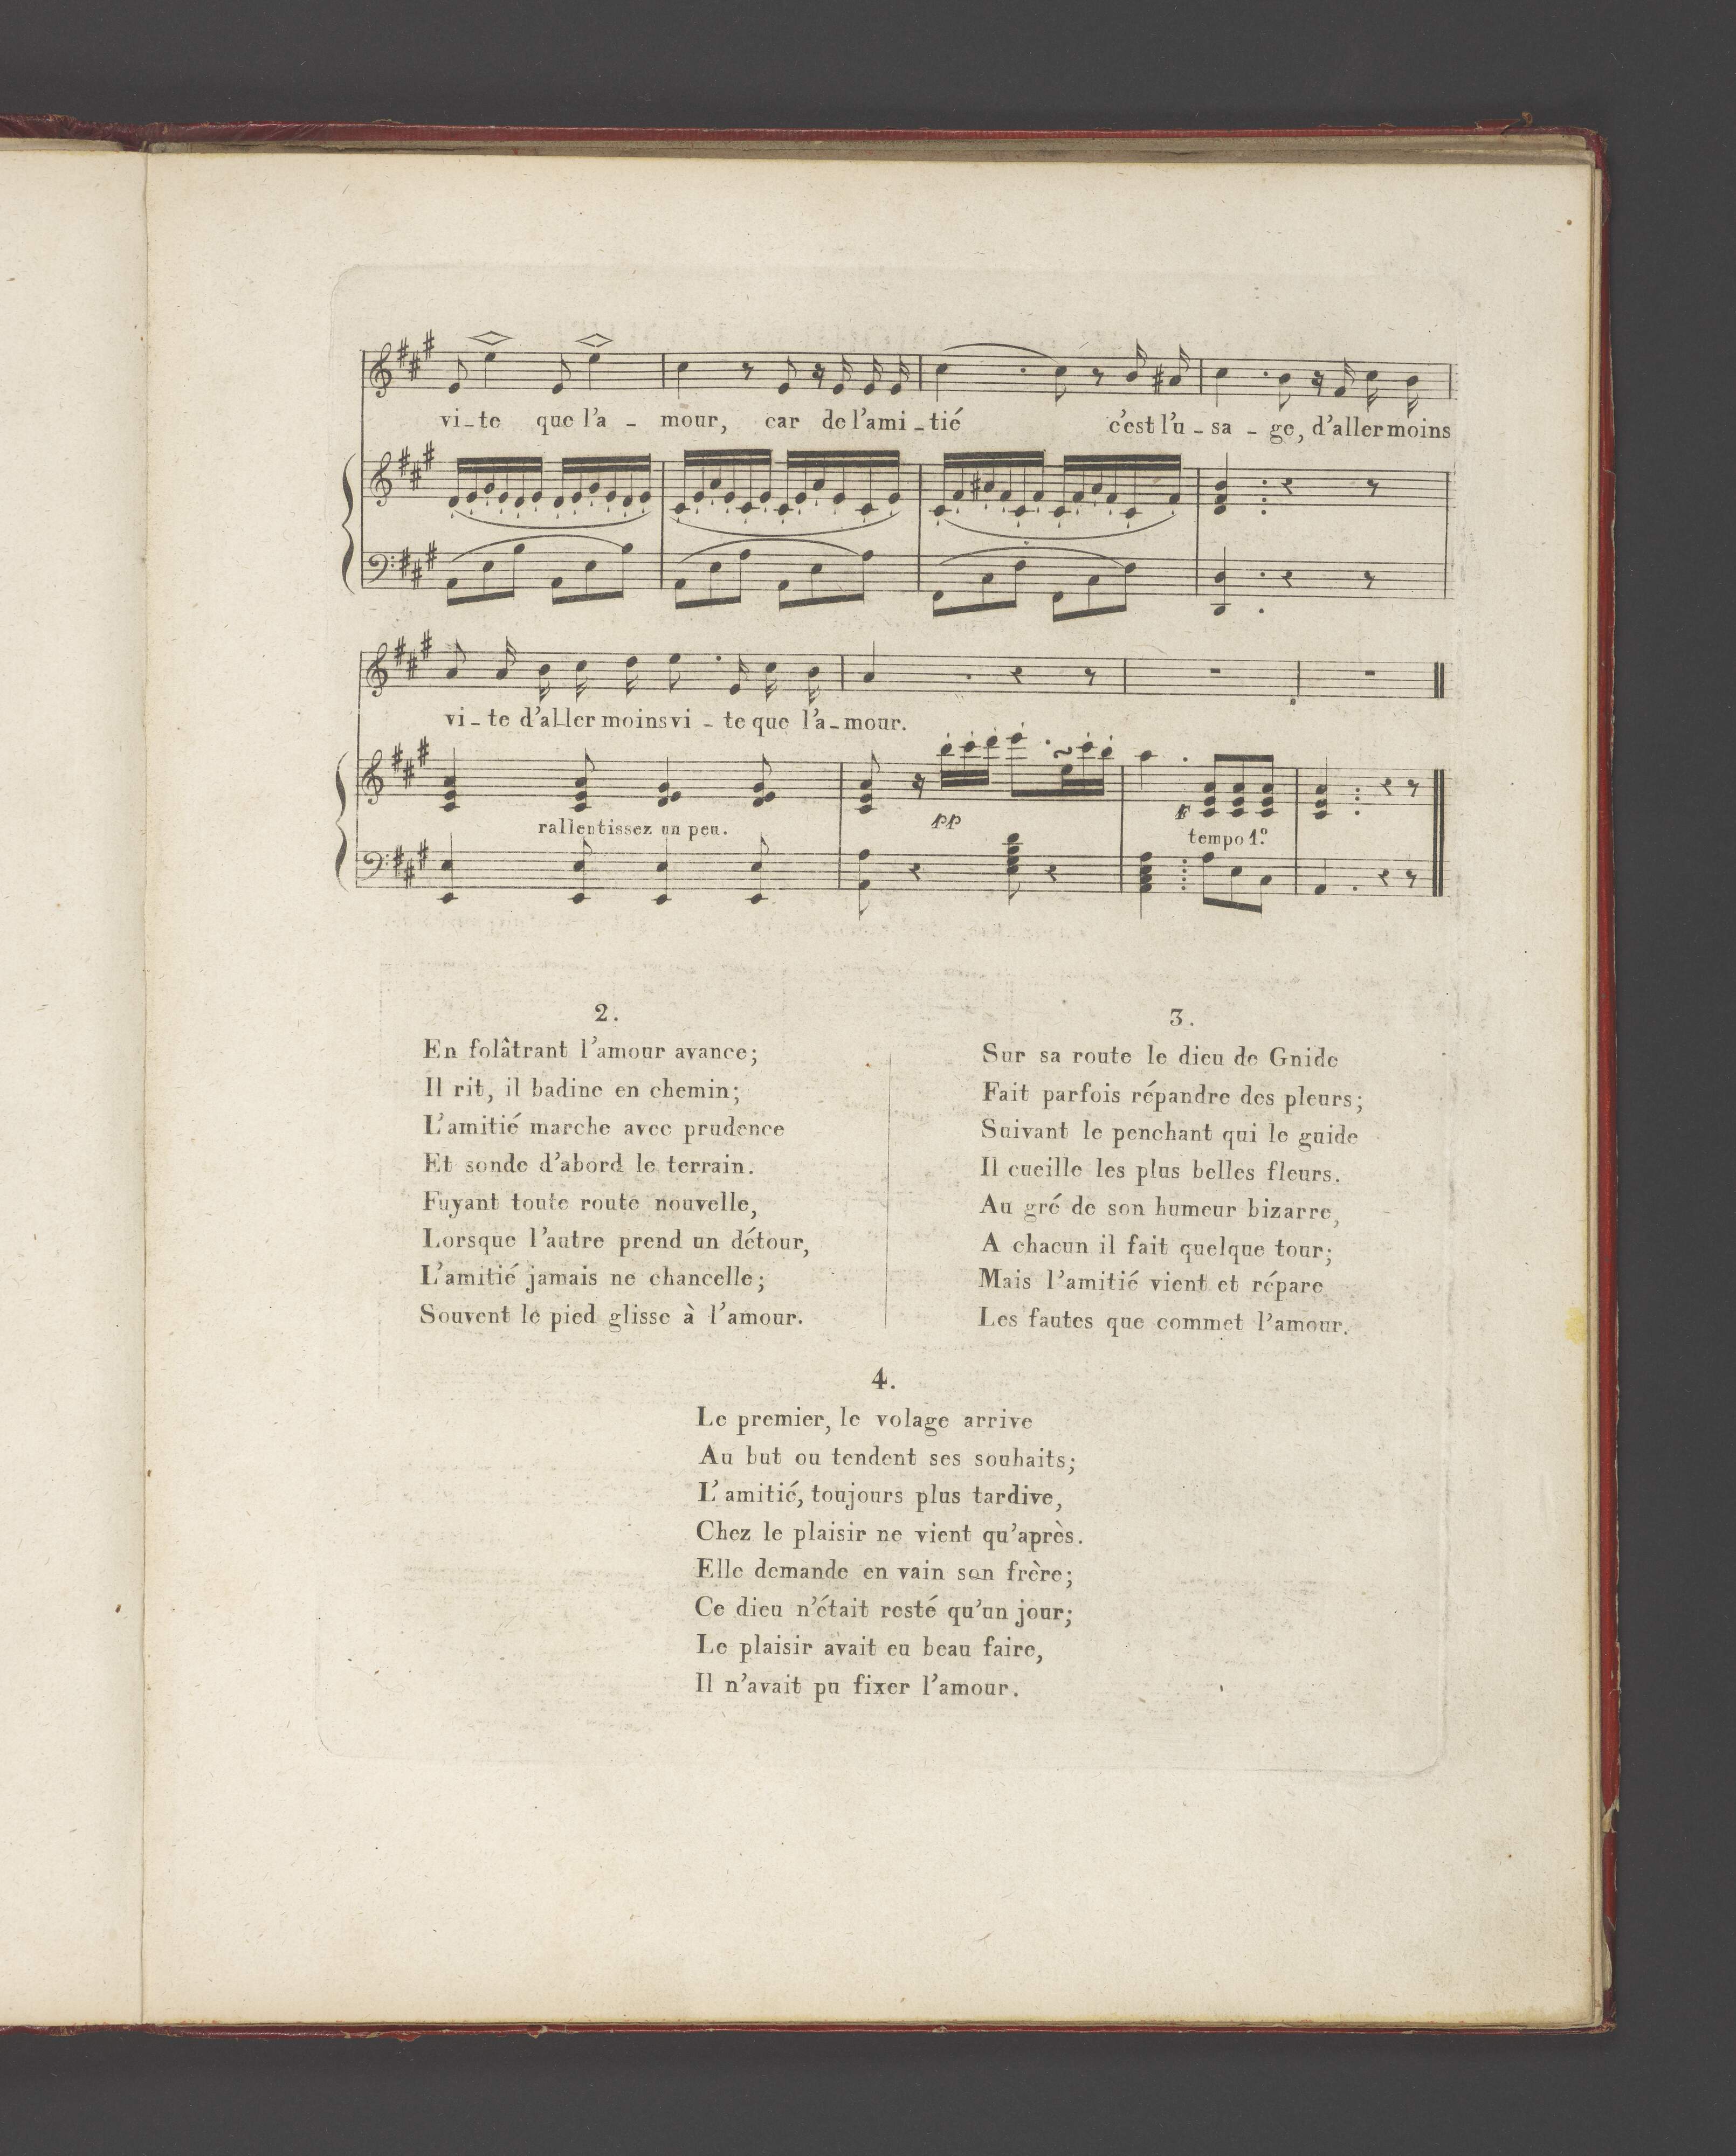 vi - te que l'a - mour, car de l'ami - tié c'est l'u - sa - ge, d'aller moins
vi - te d'aller moins vi - te que l'a - mour.
pp
F
rallentissez un peu.
tempo 1º.
2.
En folâtrant l'amour avance;
Il rit, il badine en chemin;
L'amitié marche avec prudence
Et sonde d'abord le terrain.
Fuyant toute route nouvelle,
Lorsque l'autre prend un détour,
L'amitié jamais ne chancelle;
Souvent le pied glisse à l'amour.
3.
Sur sa route le dieu de Gnide
Fait parfois répandre des pleurs;
Suivant le penchant qui le guide
Il cueille les plus belles fleurs.
Au gré de son humeur bizarre,
A chacun il fait quelque tour;
Mais l'amitié vient et répare
Les fautes que commet l'amour.
4.
Le premier, le volage arrive
Au but ou tendent ses souhaits;
L'amitié, toujours plus tardive,
Chez le plaisir ne vient qu'après.
Elle demande en vain son frère;
Ce dieu n'était resté qu'un jour;
Le plaisir avait eu beau faire,
Il n'avait pu fixer l'amour.